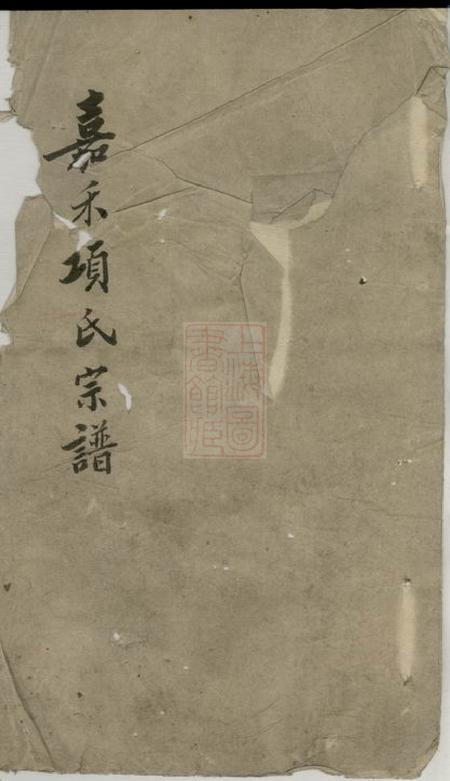 嘉禾項氏宗譜
上海圖
書館藏